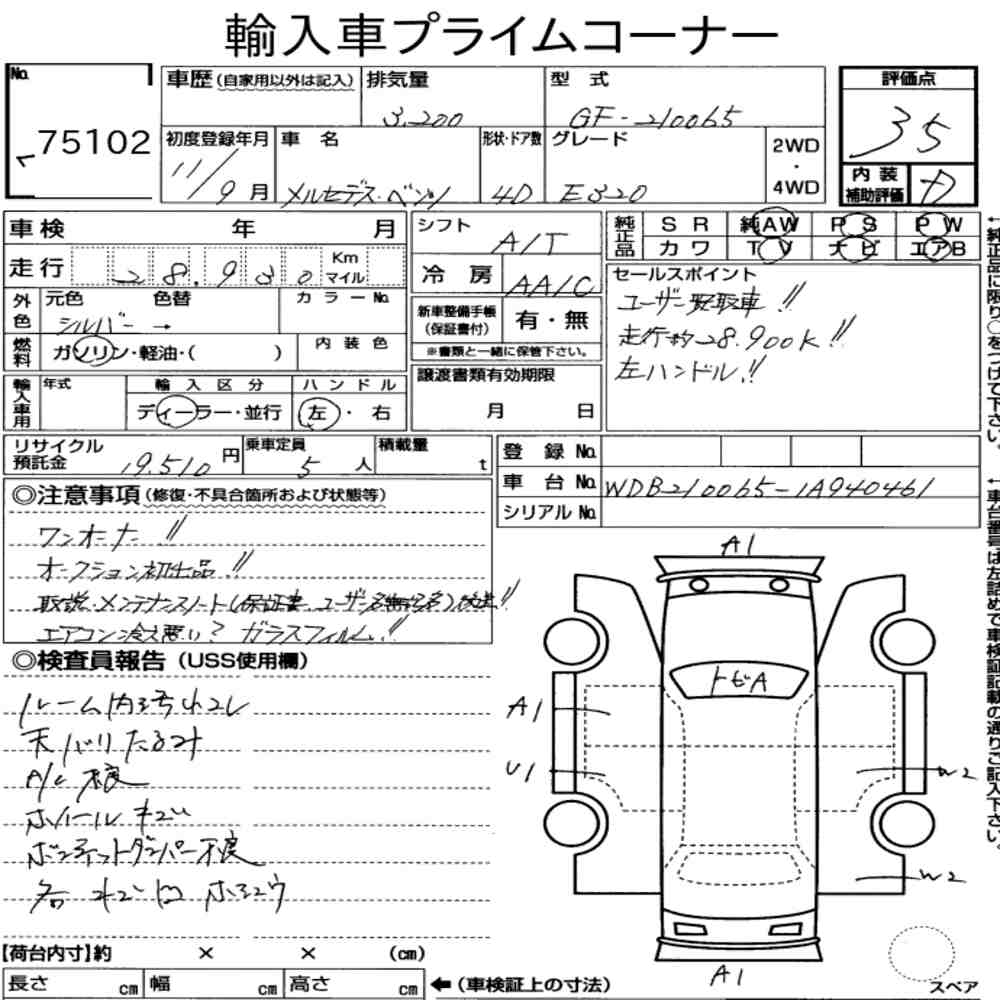 輸入車プライムコーナー
No.
75102
車歴(自家用以外は記入)
排気量
3,200
型 式
GF-210065
評価点
35
初度登録年月
11/9月
車 名
メルセデス・ベンツ
形状・ドア数
4D
グレード
E320
2WD
・
4WD
内装
補助評価
D
車検 年 月
シフト
A/T
純正品
S R 純AW P S P W
カワ T V ナビ エアB
走行 28,930 Km マイル
冷 房
AA/C
外色
元色 色替
シルバー →
カラーNo.
新車整備手帳
(保証書付)
有・無
※書類と一緒に保管下さい。
燃料
ガソリン・軽油・( )
内 装 色
セールスポイント
ユーザー買取車!!
走行約28.900K!!
左ハンドル!!
輸入車用
年式
輸 入 区 分
ディーラー・並行
ハ ン ド ル
左・右
譲渡書類有効期限
月 日
←純正品に限り○をつけて下さい。
リサイクル
預託金
19,510円
乗車定員
5人
積載量
t
登 録 No.
車 台 No.
WDB210065-1A940461
シリアルNo.
←車台番号は左詰めで車検証記載の通りご記入下さい。
◎注意事項(修復・不具合箇所および状態等)
ワンオーナー!!
オークション初出品!!
取説・メンテナンスノート(保証書、ユーザー名無記名)後送!!
エアコン冷え悪い? ガラスフィルム!!
◎検査員報告(USS使用欄)
ルーム内汚れコゲ
天バリたるみ
A/C不良
ホイールキズ
ボンネットダンパー不良
各キズ凹
A1
トビA
A1
U1
W2
W2
A1
スペア
【荷台内寸】約 × × (cm)
長さ cm 幅 cm 高さ cm ←(車検証上の寸法)